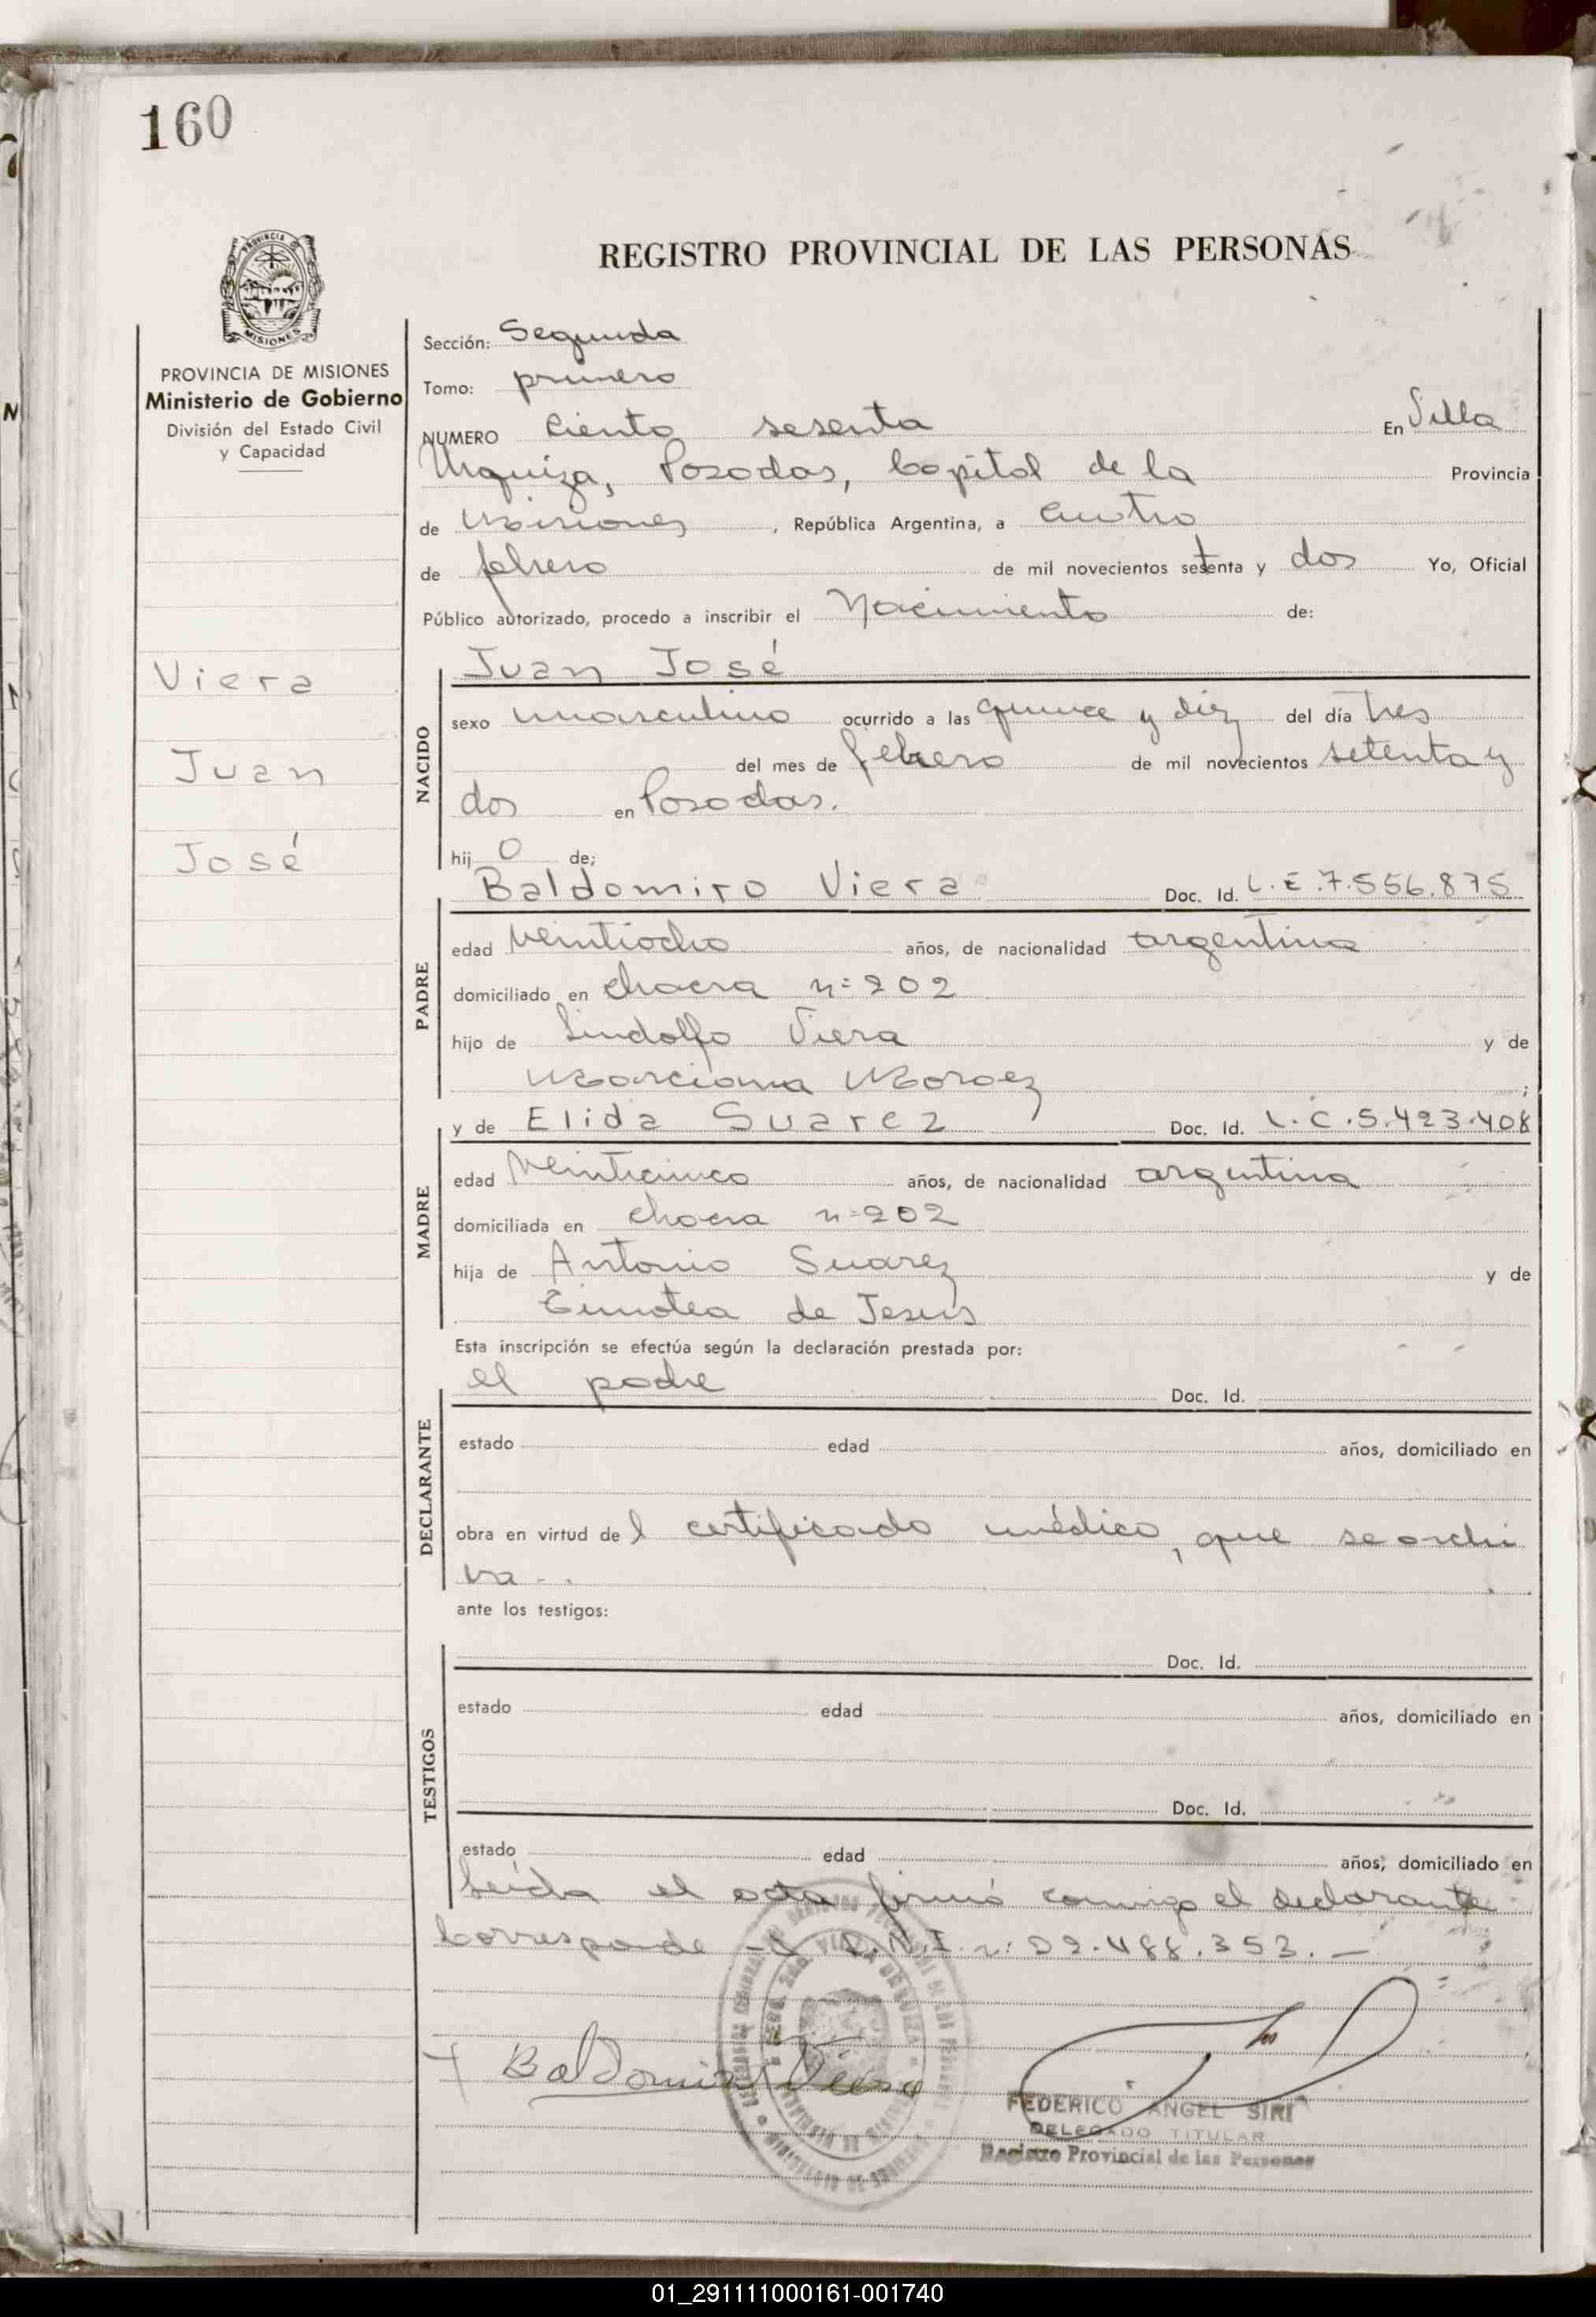 160
PROVINCIA DE
MISIONES
REGISTRO PROVINCIAL DE LAS PERSONAS
PROVINCIA DE MISIONES
Ministerio de Gobierno
División del Estado Civil
y Capacidad
Viera
Juan
José
Sección: Segunda
Tomo: primero
NUMERO ciento sesenta En Villa
Urquiza, Posadas, Capital de la Provincia
de Misiones, República Argentina, a cuatro
de febrero de mil novecientos setenta y dos Yo, Oficial
Público autorizado, procedo a inscribir el Nacimiento de:
Juan José
NACIDO
sexo masculino ocurrido a las quince y diez del día tres
del mes de febrero de mil novecientos setenta y
dos en Posadas.
hij o de;
Baldomiro Viera Doc. Id. L.E.7.556.875
PADRE
edad veintiocho años, de nacionalidad argentina
domiciliado en chacra n=202
hijo de Lindolfo Viera y de
Marciana Moraez;
y de Elida Suarez Doc. Id. L.C.5.423.408
MADRE
edad veinticinco años, de nacionalidad argentina
domiciliada en chacra n=202
hija de Antonio Suarez y de
Timotea de Jesus
Esta inscripción se efectúa según la declaración prestada por:
el padre Doc. Id.
DECLARANTE
estado edad años, domiciliado en
obra en virtud del certificado médico, que se archi
va-.
ante los testigos:
Doc. Id.
TESTIGOS
estado edad años, domiciliado en
Doc. Id.
estado edad años, domiciliado en
Leída el acta firmó conmigo el declarante
Corresponde D.N.I. n: 22.488.353.—
Baldomiro Viera
FEDERICO ANGEL SIRI
DELEGADO TITULAR
Registro Provincial de las Personas
01_291111000161-001740